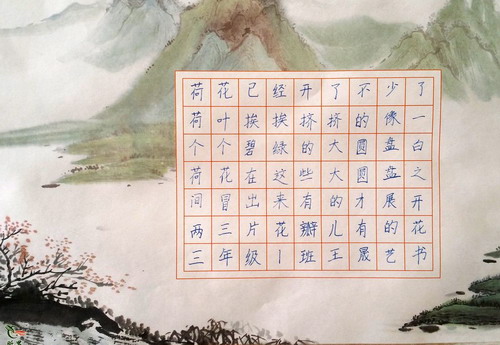 荷花已经开了不少了
荷叶挨挨挤挤的像一
个个碧绿的大圆盘白
荷花在这些大圆盘之
间冒出来有的才展开
两三片花瓣儿有的花
三年级1班王晟艺书